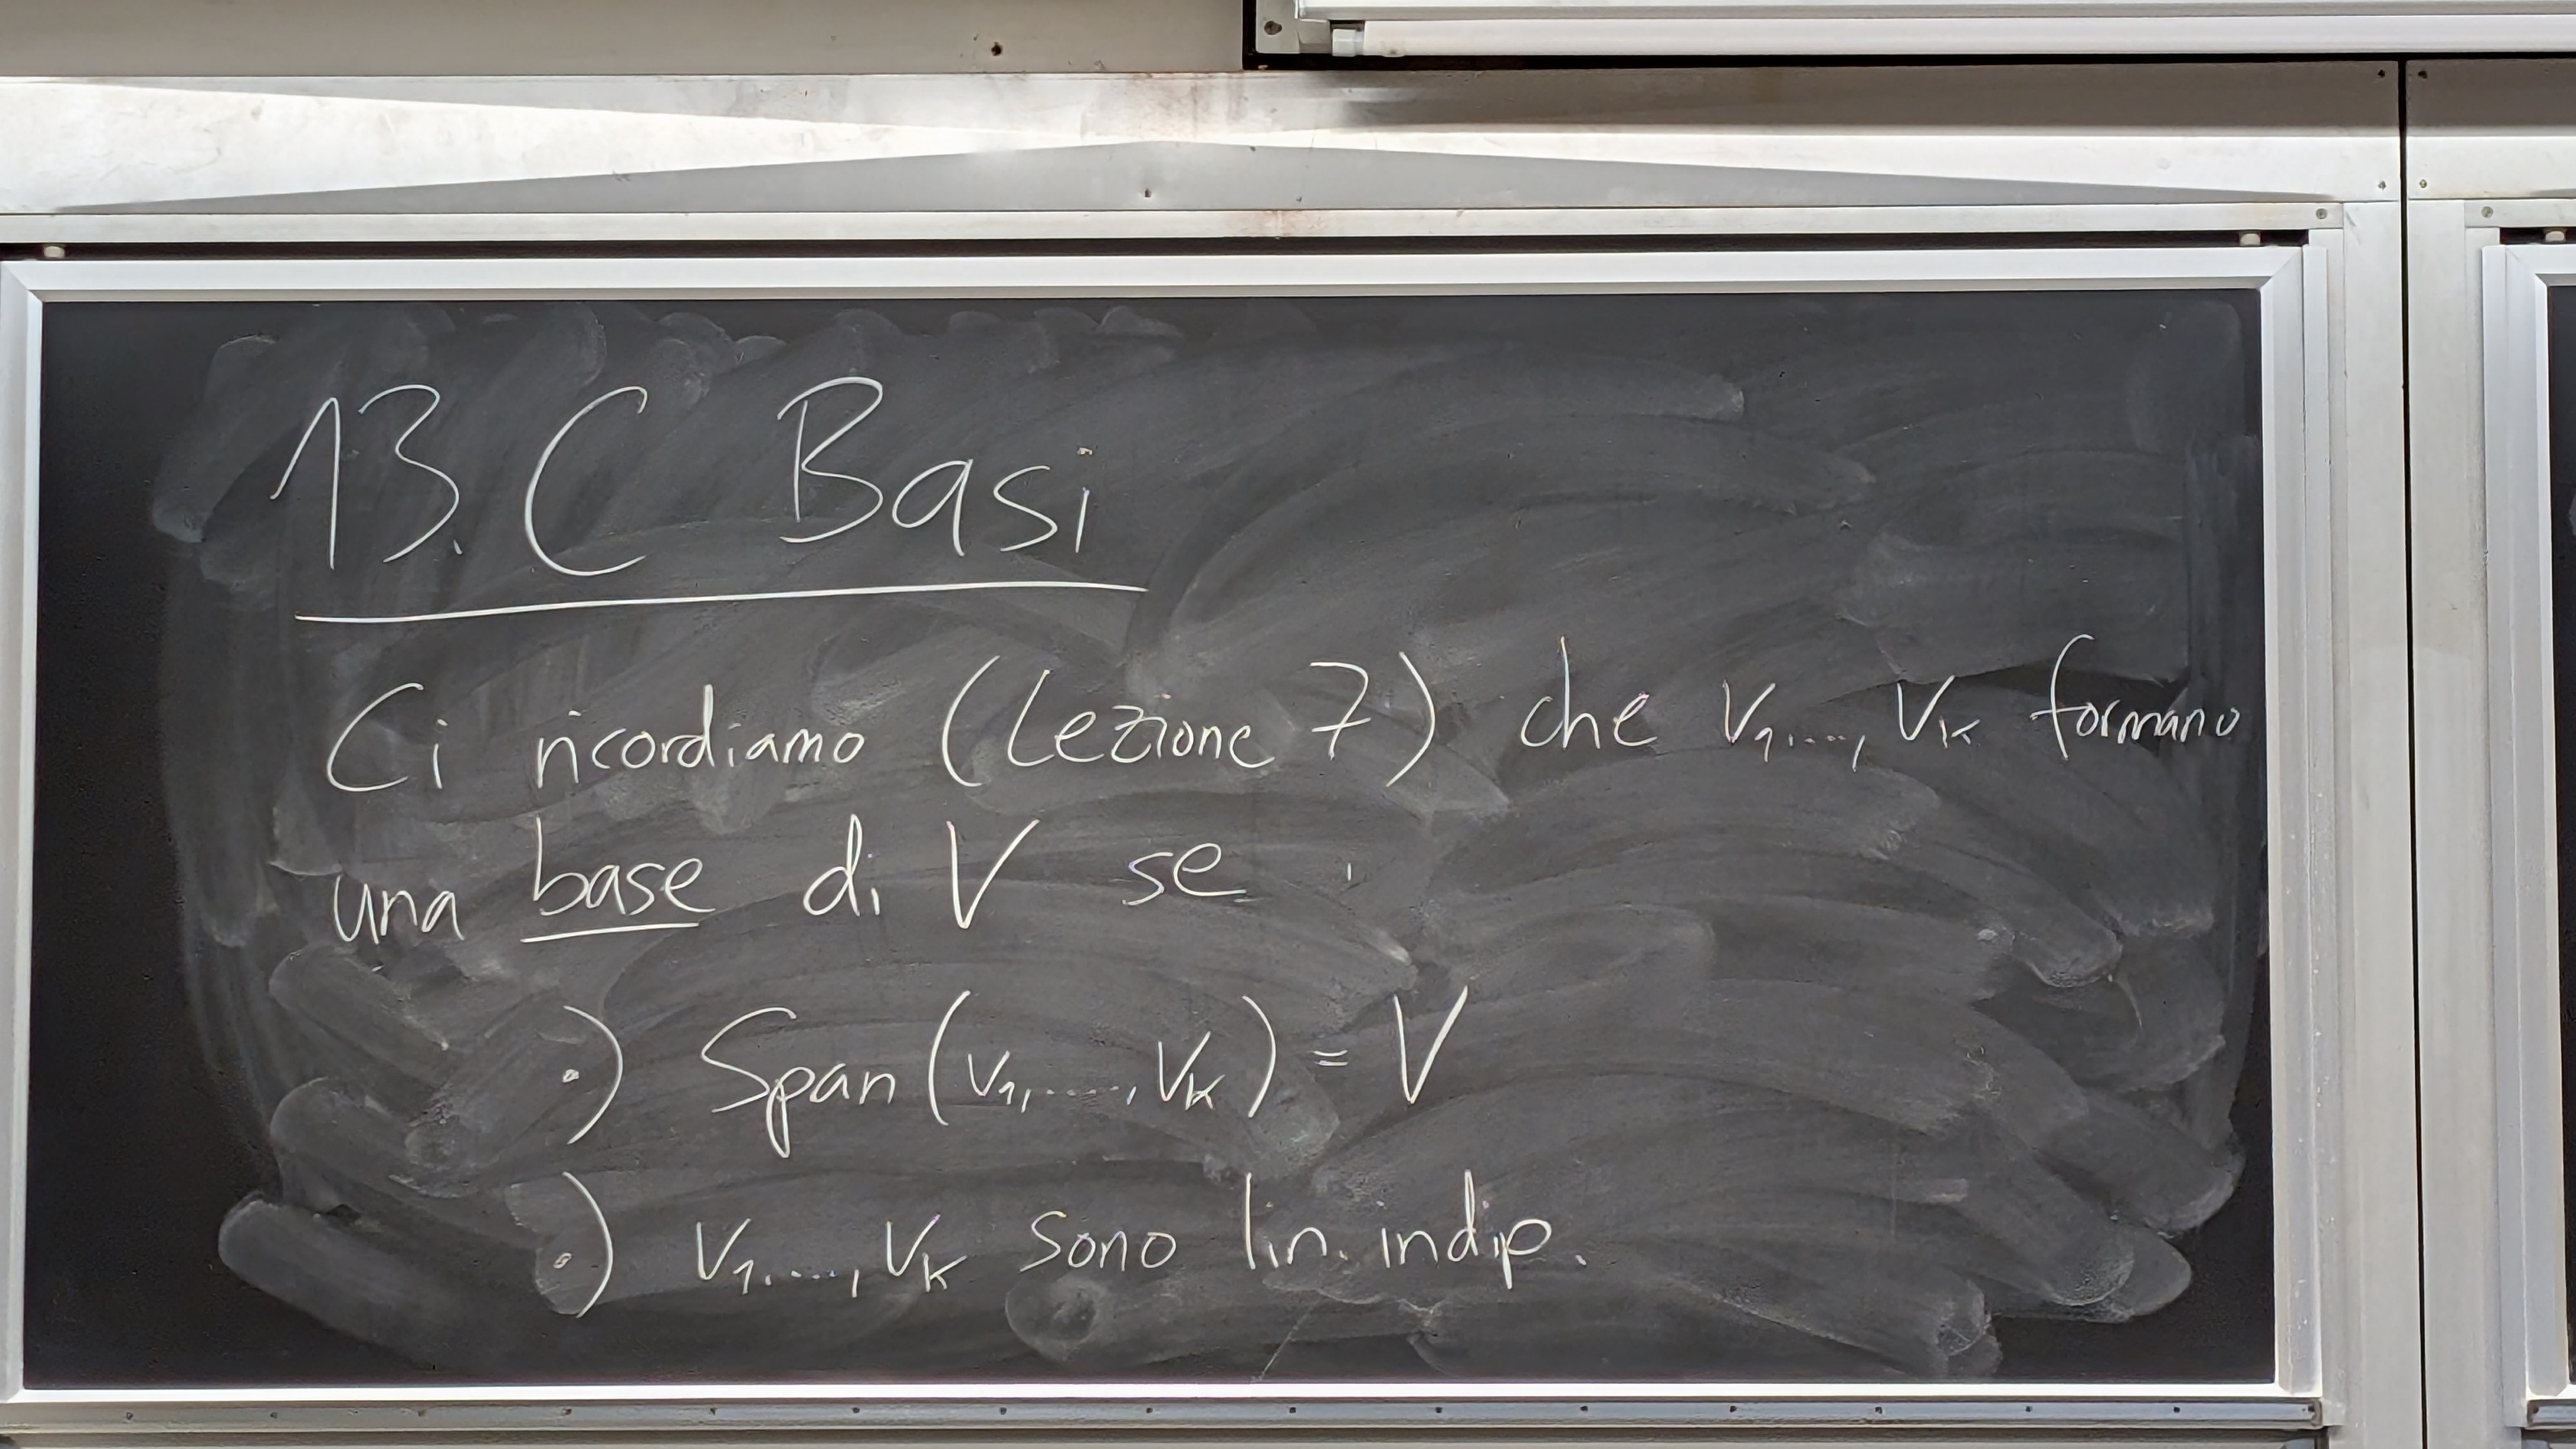 13. C Basi
Ci ricordiamo (Lezione 7) che v₁,...., vₖ formano
una base di V se
•) Span (v₁,....., vₖ) = V
•) v₁,...., vₖ sono lin. indip.